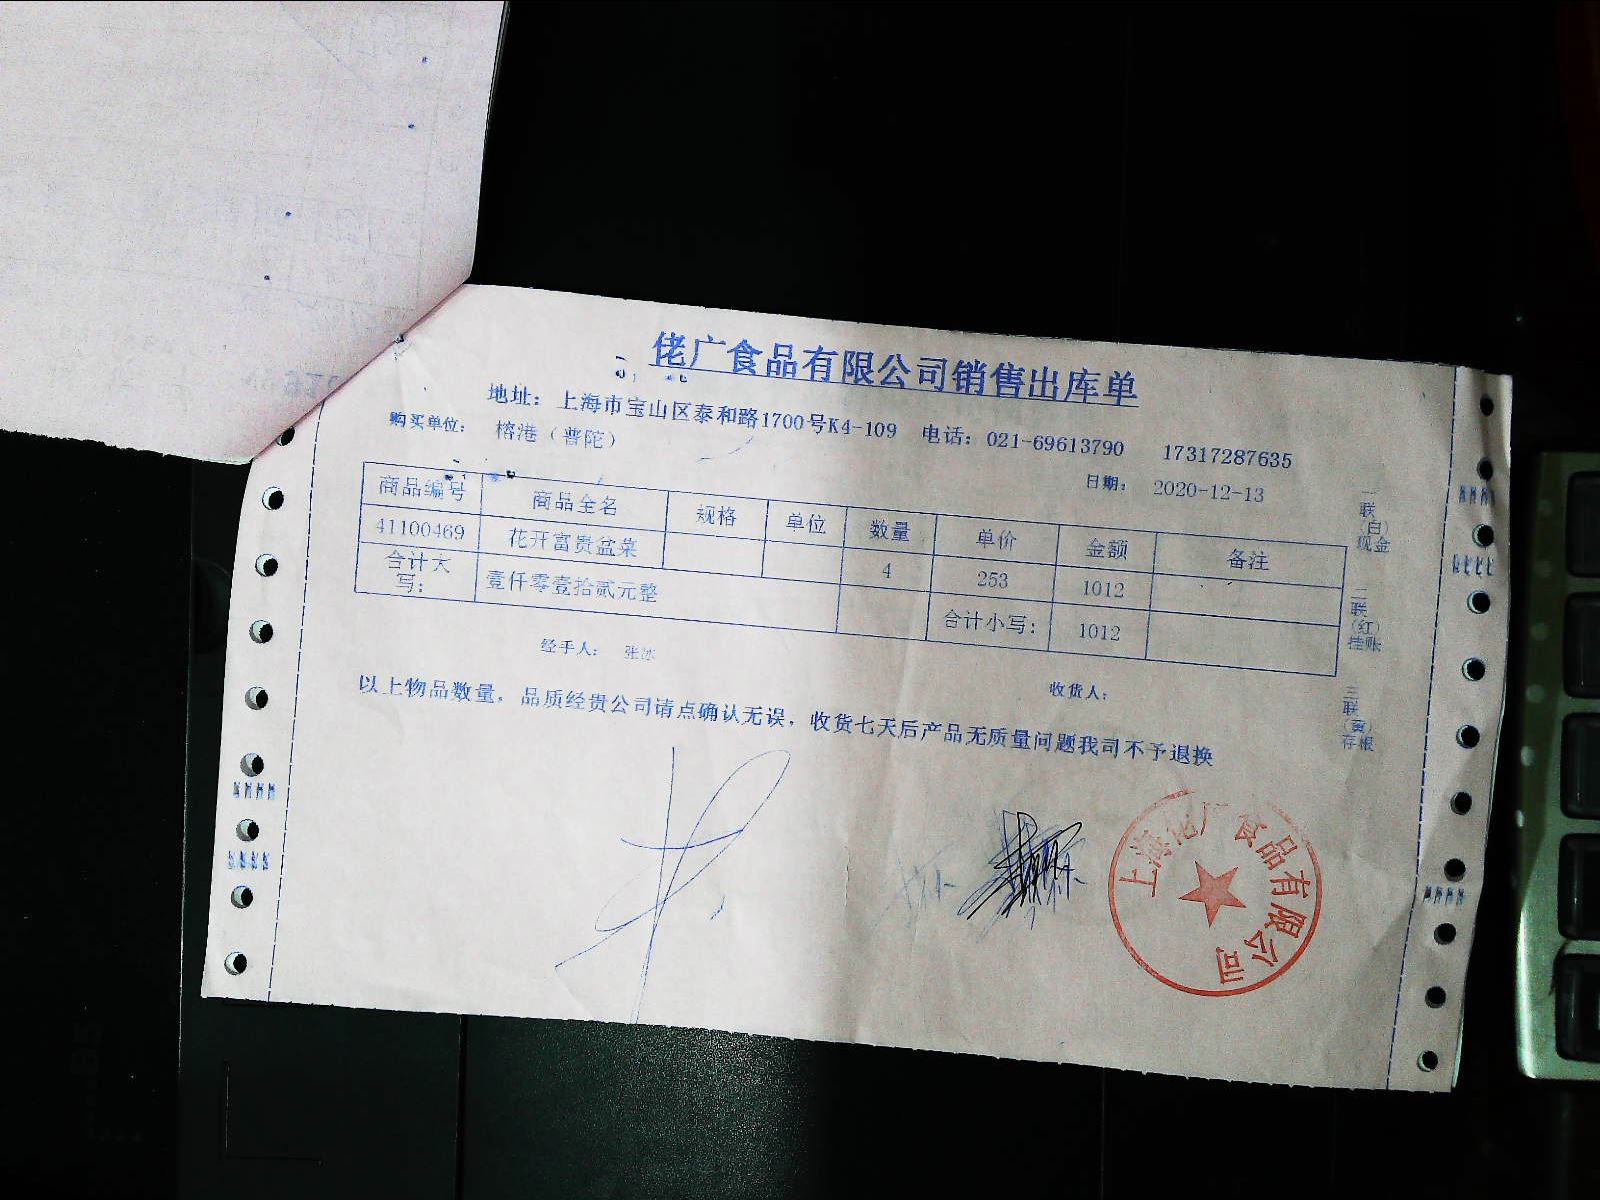 佬广食品有限公司销售出库单
地址：上海市宝山区泰和路1700号K4-109 电话：021-69613790 17317287635
购买单位： 榕港（普陀）
日期： 2020-12-13
商品编号 商品全名 规格 单位 数量 单价 金额 备注
41100469 花开富贵盆菜 4 253 1012
合计大写： 壹仟零壹拾贰元整 合计小写： 1012
经手人： 张冰
收货人：
以上物品数量，品质经贵公司请点确认无误，收货七天后产品无质量问题我司不予退换
一联（白）现金
二联（红）挂账
三联（黄）存根
上海佬广食品有限公司